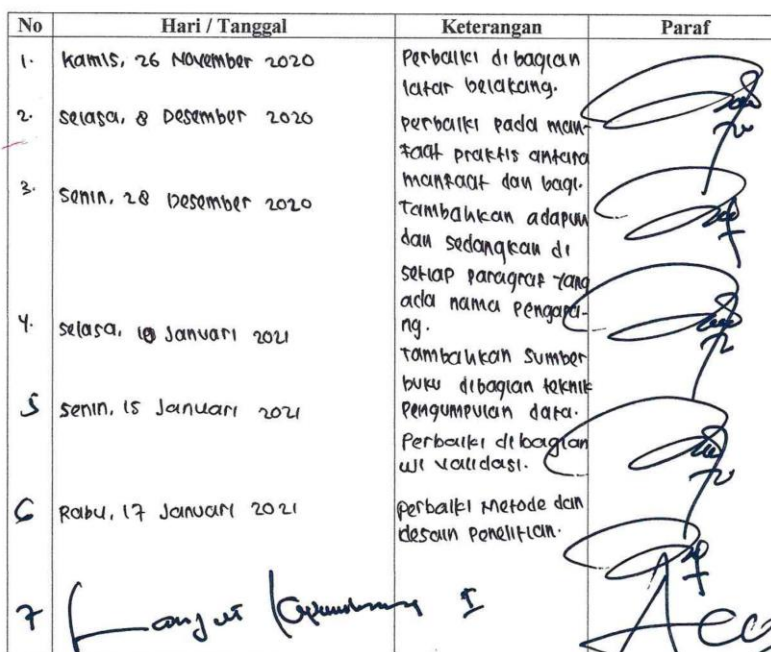 No Hari / Tanggal Keterangan Paraf
1. Kamis, 26 November 2020 Perbaiki dibagian
latar belakang.
2. Selasa, 8 Desember 2020 perbaiki pada man-
faat praktis antara
manfaat dan bagi.
3. Senin, 28 Desember 2020 Tambahkan adapun
dan sedangkan di
setiap paragraf yang
ada nama pengara-
ng.
4. Selasa, Januari 2021
Tambahkan sumber
buku dibagian teknik
Pengumpulan data.
5 Senin, 15 Januari 2021
Perbaiki dibagian
uji validasi.
6 Rabu, 17 Januari 2021 perbaiki Metode dan
desain Penelitian.
7 Lanjut I Acc